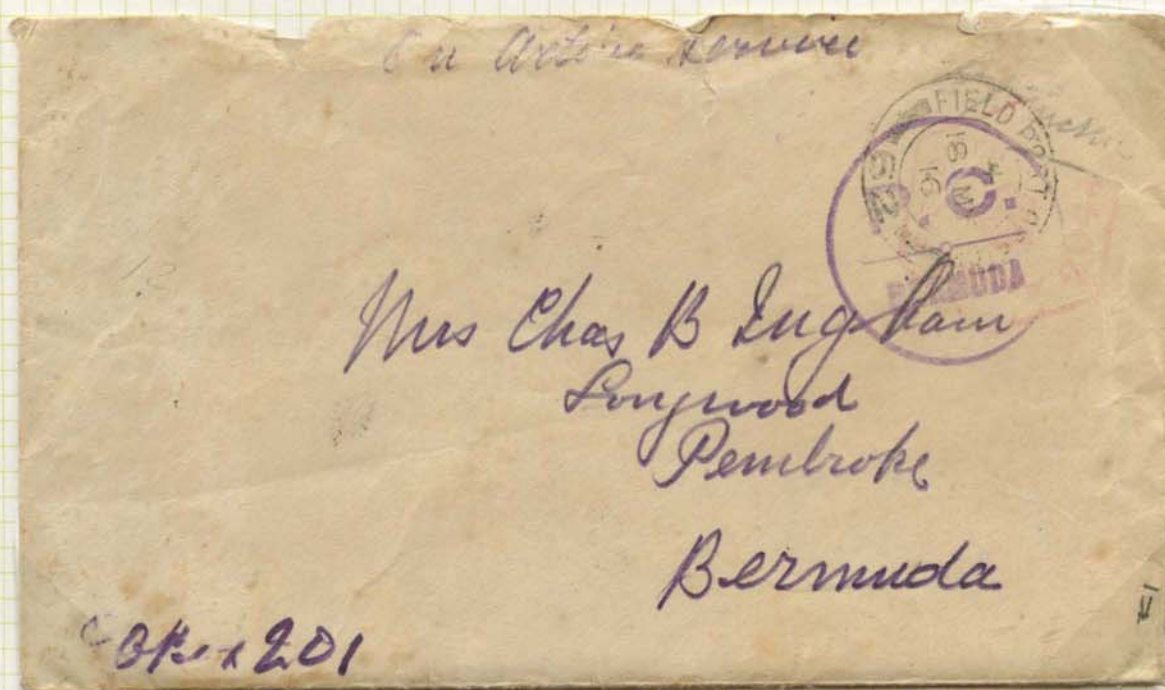 On Active Service
FIELD POST
18
16
C.
BERMUDA
Mrs Chas B Ingham
Longwood
Pembroke
Bermuda
201